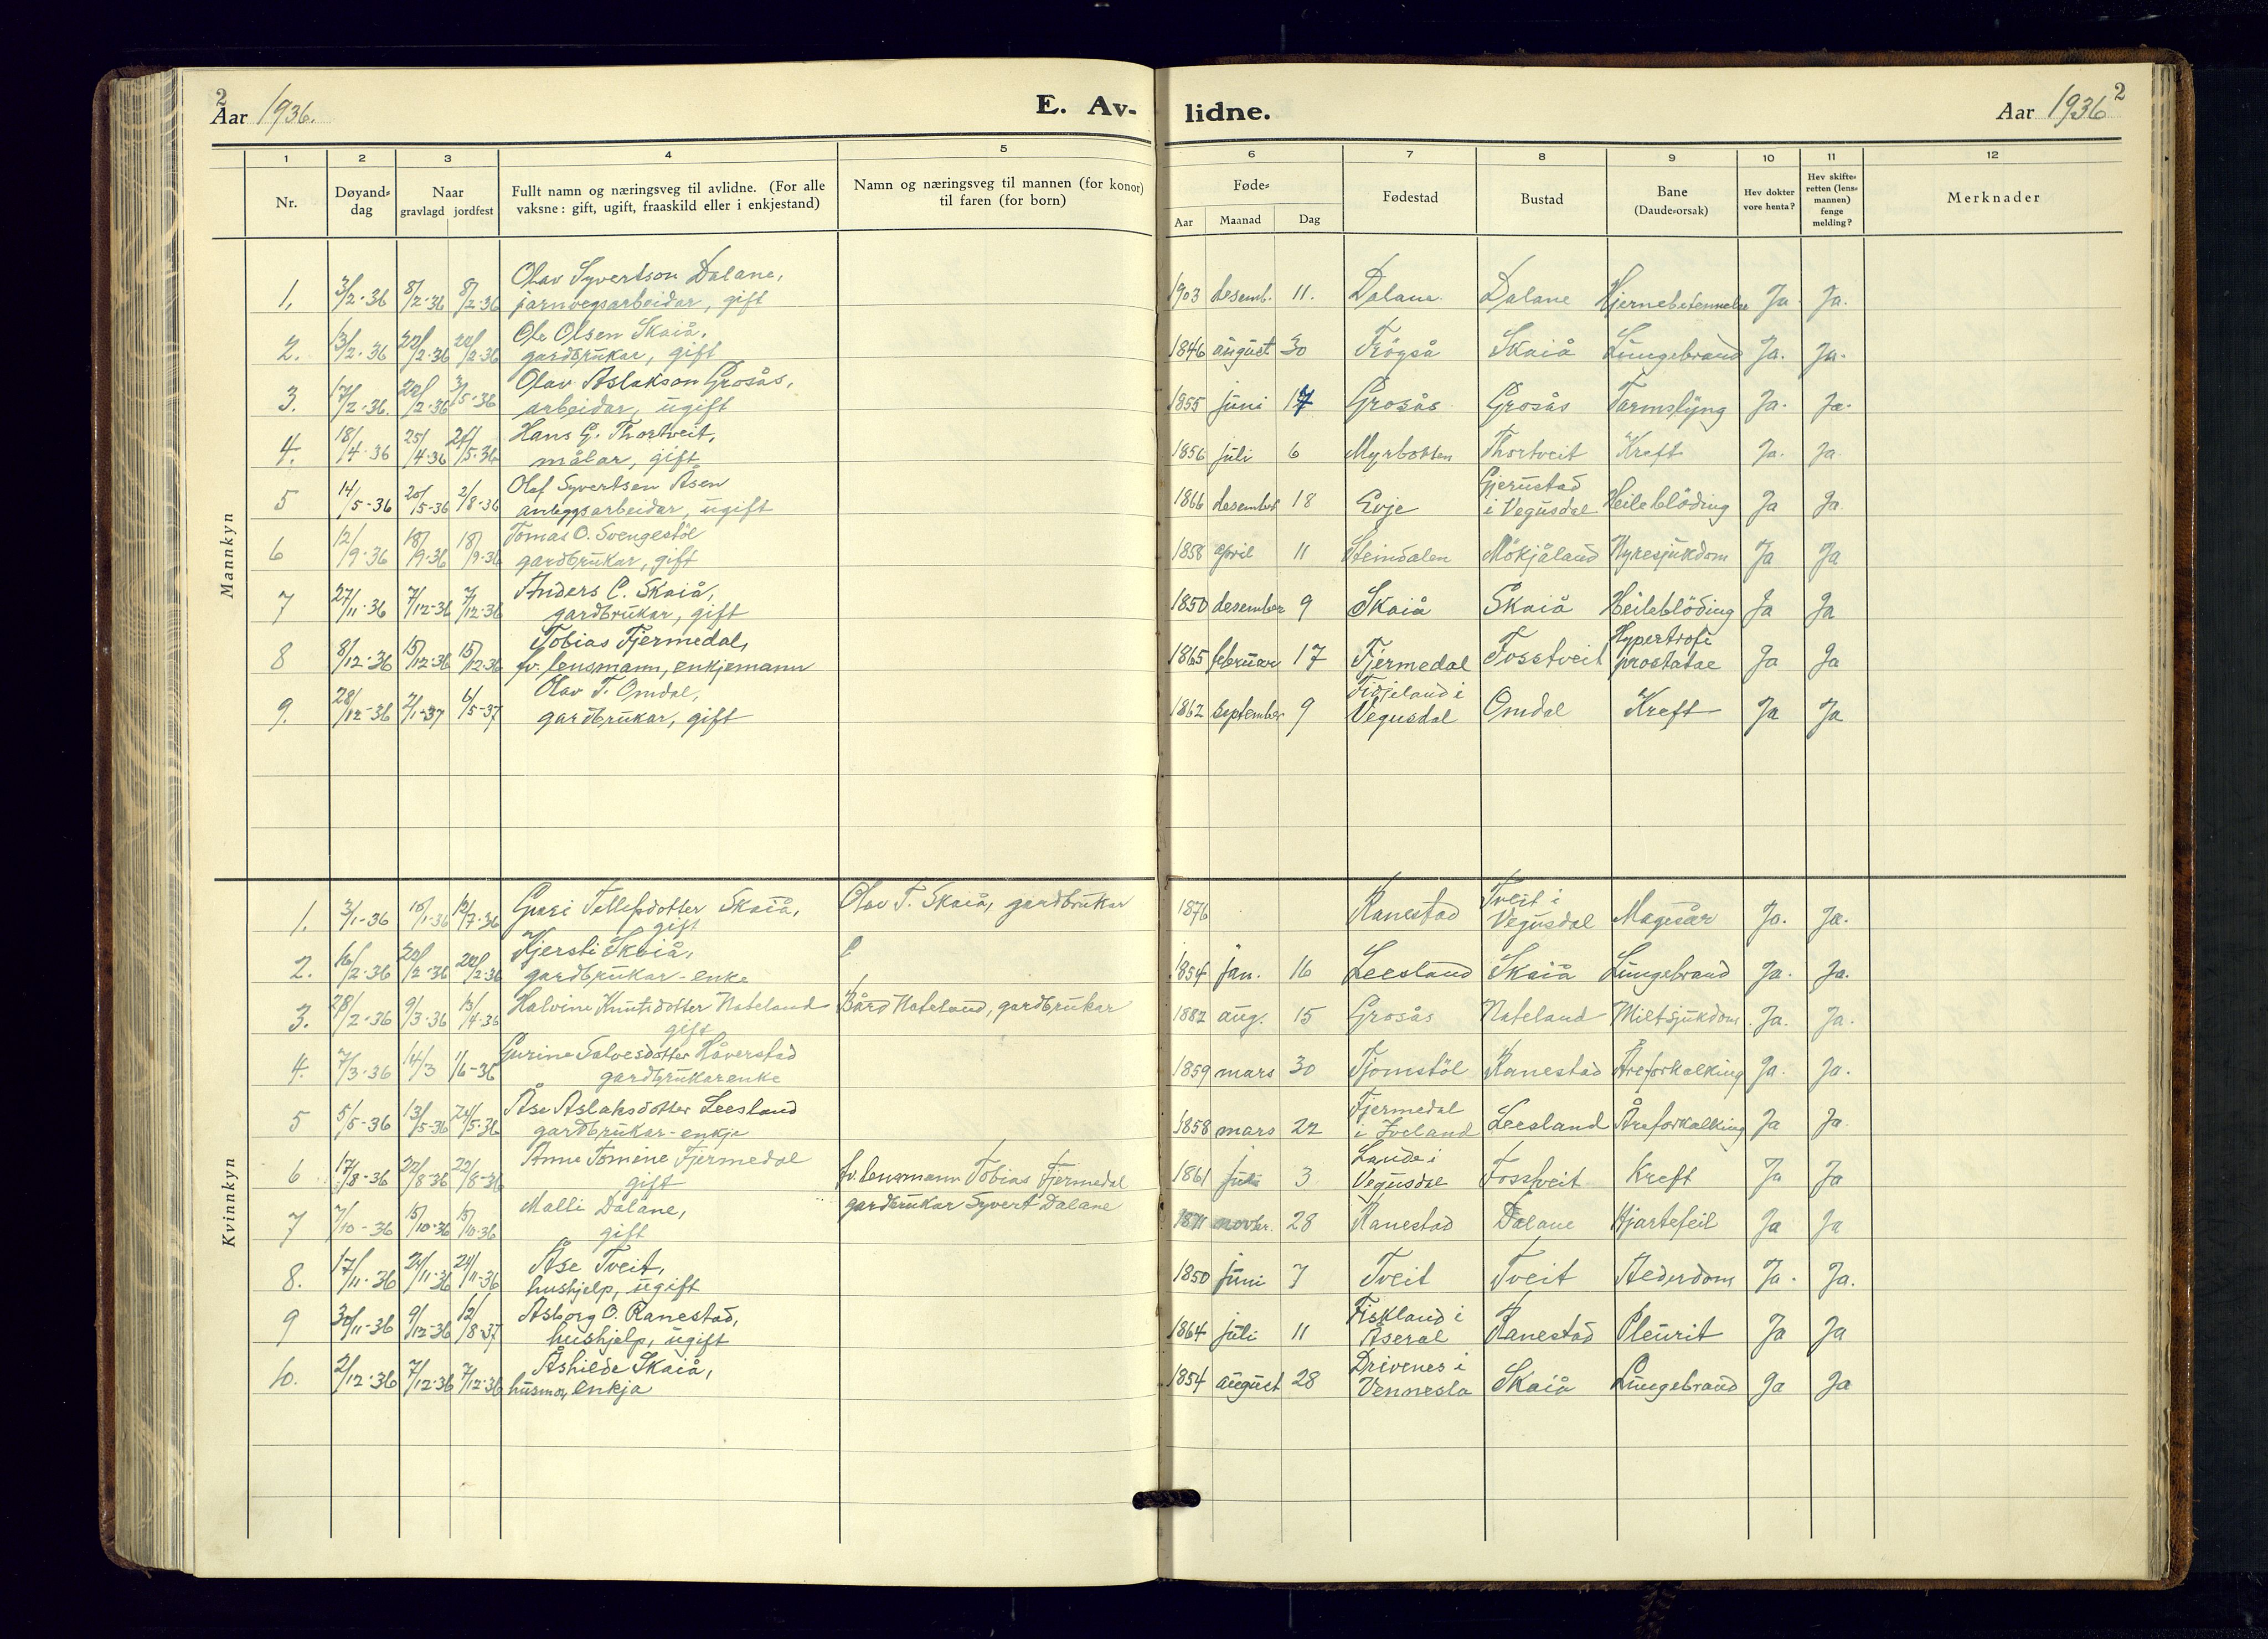 2
Aar 1936.
E. Av-
lidne.
Aar 1936
2
1 2 3 4 5 6 7 8 9 10 11 12
Nr.
Døyand-
dag
Naar
gravlagd jordfest
Fullt namn og næringsveg til avlidne. (For alle
vaksne: gift, ugift, fraaskild eller i enkjestand)
Namn og næringsveg til mannen (for konor)
til faren (for born)
Føde-
Aar Maanad Dag
Fødestad
Bustad
Bane
(Daude-orsak)
Hev dokter
vore henta?
Hev skifte-
retten (lens-
mannen)
fenge
melding?
Merknader
Mannkyn
Olav Syvertson Dalane,
1. 3/2-36 8/2-36 8/2-36 jarnvegsarbeidar, gift 1903 desemb. 11. Dalane Dalane Hjernebetennelse Ja. Ja.
Ole Olsen Skaiå,
2. 13/2-36 22/2-36 22/2-36 gardbrukar, gift 1846 august 30 Frögså Skaiå Lungebrand Ja. Ja.
Olav Aslakson Grosås,
3. 17/2-36. 22/2-36 3/5-36 arbeidar, ugift 1855 juni 17 Grosås Grosås Tarmslyng Ja. Ja.
Hans G. Thortveit,
4. 18/4-36 25/4-36 21/5-36 målar, gift 1856 juli 6 Myrbotten Thortveit Kreft Ja. Ja
Olaf Syvertsen Åsen Gjerustad
5 14/5-36 20/5-36 2/8-36 anleggsarbeidar, ugift 1866 desember 18 Evje i Vegusdal Heileblöding Ja Ja
Tomas O. Svengestöl
6 12/9-36 18/9-36 18/9-36 gardbrukar, gift 1858 april 11 Steindalen Mökjåland Nyresjukdom Ja Ja
Anders C. Skaiå,
7 27/11-36 7/12-36 7/12-36 gardbrukar, gift 1850 desember 9 Skaiå Skaiå Heileblöding Ja Ja
Tobias Fjermedal, Hypertrofi
8 8/12-36 15/12-36 15/12-36 fv. lensmann, enkjemann 1865 februar 17 Fjermedal Fosstveit prostatae Ja Ja
Olav T. Omdal, Fidjeland i
9. 28/12-36 2/1-37 6/5-37 gardbrukar, gift 1862 september 9 Vegusdal Omdal Kreft Ja Ja
Kvinnkyn
Guri Tellefsdotter Skaiå, Olav T. Skaiå, gardbrukar Tveit i
1. 3/1-36 18/1-36 12/7-36 gift 1876 Ranestad Vegusdal Magesår Ja. Ja.
Kjersti Skaiå,
2. 16/2-36 22/2-36 22/2-36 gardbrukar-enke 1854 jan. 16 Leesland Skaiå Lungebrand Ja. Ja.
Halvine Knutsdotter Nateland Bård Nateland, gardbrukar
3. 28/2-36 9/3-36 13/4-36 gift 1882 aug. 15 Grosås Nateland Miltsjukdom Ja. Ja.
Gurine Salvesdotter Håverstad
4. 7/3-36 14/3 1/6-36 gardbrukarenke 1859 mars 30 Tjomstöl Ranestad Åreforkalking Ja. Ja.
Åse Aslaksdotter Leesland Fjermedal
5 5/5-36 13/5-36 24/5-36 gardbrukar-enkje 1858 mars 22 i Iveland Leesland Åreforkalking Ja Ja
Anne Tomine Fjermedal Lande i
6 17/8-36 22/8-36 22/8-36 gift fv. lensmann Tobias Fjermedal 1861 juli 3 Vegusdal Fosstveit Kreft Ja Ja
Malli Dalane, gardbrukar Syvert Dalane
7 7/10-36 15/10-36 15/10-36 gift 1871 novbr. 28 Ranestad Dalane Hjartefeil Ja Ja
Åse Tveit,
8. 17/11-36 24/11-36 24/11-36 hushjelp, ugift 1850 juni 7 Tveit Tveit Alderdom Ja. Ja.
Asborg O. Ranestad, Fiskland i
9 30/11-36 9/12-36 12/8-37 hushjelp, ugift 1864 juli 11 Åseral Ranestad Pleurit Ja Ja
Åshilde Skaiå, Drivenes i
10. 2/12-36 7/12-36 7/12-36 husmor, enkja 1854 august 28 Vennesla Skaiå Lungebrand Ja Ja